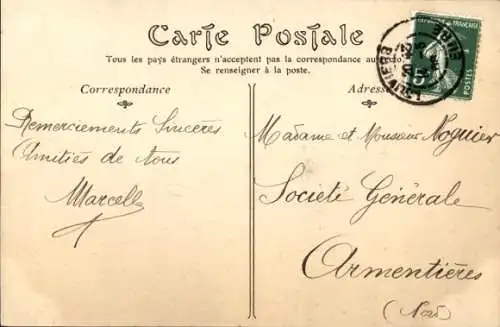 Carte Postale
Tous les pays étrangers n'acceptent pas la correspondance au
Se renseigner à la poste.
Correspondance
Adresse
Remerciements Sincères
Amitiés de tous
Marcelle
Madame et Monsieur Noguier
Société Générale
Armentières
(Nord)
LOUVIERS
EURE
POSTES
5